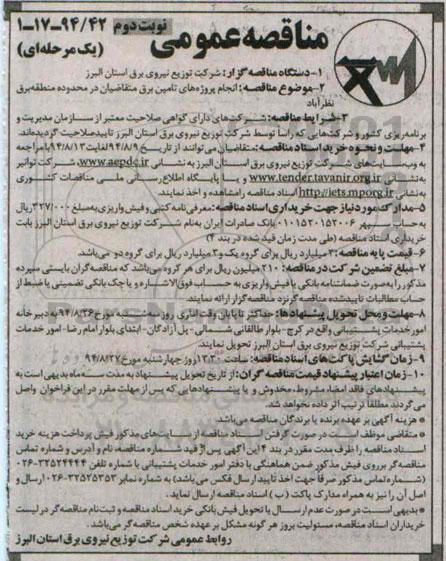 مناقصه عمومی
نوبت دوم
۱-۱۷-۹۴/۴۲
(یک مرحله‌ای)
۱- دستگاه مناقصه گزار: شرکت توزیع نیروی برق استان البرز
۲- موضوع مناقصه: انجام پروژه‌های تامین برق متقاضیان در محدوده منطقه برق
نظرآباد
۳- شرایط مناقصه: شرکت‌های دارای گواهی صلاحیت معتبر از سازمان مدیریت و
برنامه‌ریزی کشور و شرکت‌هایی که راسا توسط شرکت توزیع نیروی برق استان البرز تایید صلاحیت گردیده‌اند.
۴- مهلت و نحوه خرید اسناد مناقصه: متقاضیان می توانند از تاریخ ۹۴/۸/۹ لغایت ۹۴/۸/۱۳ با مراجعه
به وب‌سایت‌های شرکت توزیع نیروی برق استان البرز به نشانی www.aepdc.ir، شرکت توانیر
به نشانی www.tender.tavanir.org.ir و یا پایگاه اطلاع‌رسانی ملی مناقصات کشوری
به نشانی http://iets.mporg.ir اسناد مناقصه را مشاهده و اخذ نمایند.
۵- مدارک مورد نیاز جهت خریداری اسناد مناقصه: معرفی‌نامه کتبی و فیش واریزی به مبلغ ۳۲۷/۰۰۰ ریال
به حساب سپهر ۰۱۰۱۵۲۰۱۵۲۰۰۶ بانک صادرات ایران به‌نام شرکت توزیع نیروی برق استان البرز بابت
خریداری اسناد مناقصه (طی مدت زمان قید شده در بند ۴)
۶- قیمت پایه مناقصه: ۳ میلیارد ریال برای گروه یک و ۳ میلیارد ریال برای گروه دو می‌باشد.
۷- مبلغ تضمین شرکت در مناقصه: ۲۱۰ میلیون ریال برای هر گروه می‌باشد که مناقصه‌گران بایستی سپرده
مذکور را به‌صورت ضمانتنامه بانکی یا فیش واریزی به حساب فوق‌الاشاره و یا چک بانکی تضمینی یا ضبط از
حساب مطالبات تایید شده مناقصه‌گر نزد مناقصه گزار ارائه نمایند.
۸- مهلت و محل تحویل پیشنهادها: حداکثر تا پایان وقت اداری روز سه‌شنبه مورخ ۹۴/۸/۲۶ به دبیرخانه
امور خدمات پشتیبانی واقع در کرج - بلوار طالقانی شمالی - پل آزادگان - ابتدای بلوار امام رضا - امور خدمات
پشتیبانی شرکت توزیع نیروی برق استان البرز تحویل نمایند.
۹- زمان گشایش پاکت‌های اسناد مناقصه: ساعت ۱۳:۳۰ روز چهارشنبه مورخ ۹۴/۸/۲۷
۱۰- زمان اعتبار پیشنهاد قیمت مناقصه گران: از تاریخ تحویل پیشنهاد به مدت سه‌ماه بدیهی است به
پیشنهادهای فاقد امضا، مشروط، مخدوش و یا پیشنهادهایی که پس از مهلت مقرر در این فراخوان واصل
می گردند مطلقا ترتیب اثر داده نخواهد شد.
* هزینه آگهی بر عهده برنده یا برندگان مناقصه می‌باشد.
* متقاضی موظف است در صورت گرفتن اسناد مناقصه از سایت‌های مذکور فیش پرداخت هزینه خرید
اسناد مناقصه را ظرف مدت مقرر در بند ۴ این آگهی پس از قید شماره مناقصه، نام و آدرس و شماره تماس
مناقصه‌گر بر روی فیش مذکور ضمن هماهنگی با دفتر امور خدمات پشتیبانی با شماره تلفن ۳۲۵۲۴۴۴۴-۰۲۶
(شماره تماس مذکور صرفا جهت اخذ تایید ارسال فکس می‌باشد) به شماره نمابر ۳۲۵۲۵۳۵۳-۰۲۶ ارسال و
اصل آن را نیز به همراه مدارک پاکت (ب) اسناد مناقصه ارسال نماید.
* بدیهی است در صورت عدم ارسال یا تحویل فیش بانکی خرید اسناد مناقصه و ثبت نام مناقصه‌گر در لیست
خریداران اسناد مناقصه، مسئولیت بروز هر گونه مشکل بر عهده شخص مناقصه گر می‌باشد.
روابط عمومی شرکت توزیع نیروی برق استان البرز